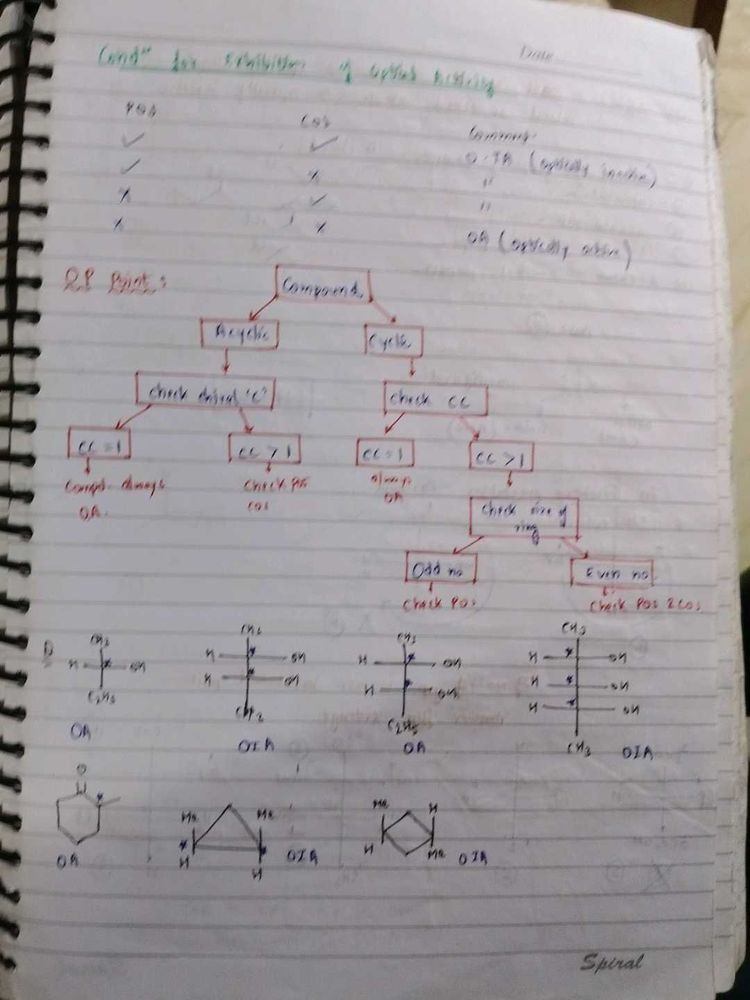 Date
Condn for Exhibition of optical Activity
POS COS Comment
✓ ✓ O.IA (optically inactive)
✓ x "
x ✓ "
x x OA (optically active)
Point:
Compound
Acyclic Cyclic
Check chiral 'C' Check CC
CC = 1 CC > 1 CC = 1 CC > 1
Compd. always Check POS always
OA. COS OA
Check size of
ring
Odd no Even no.
Check POS Check POS & COS
CH3 CH3 CH3 CH3
H OH H OH H OH H OH
H OH H OH H OH
H OH
C2H5 CH3 C2H5 CH3
OA OIA OA OIA
O
Me Me Me H
H H H Me
OA OIA OIA
Spiral